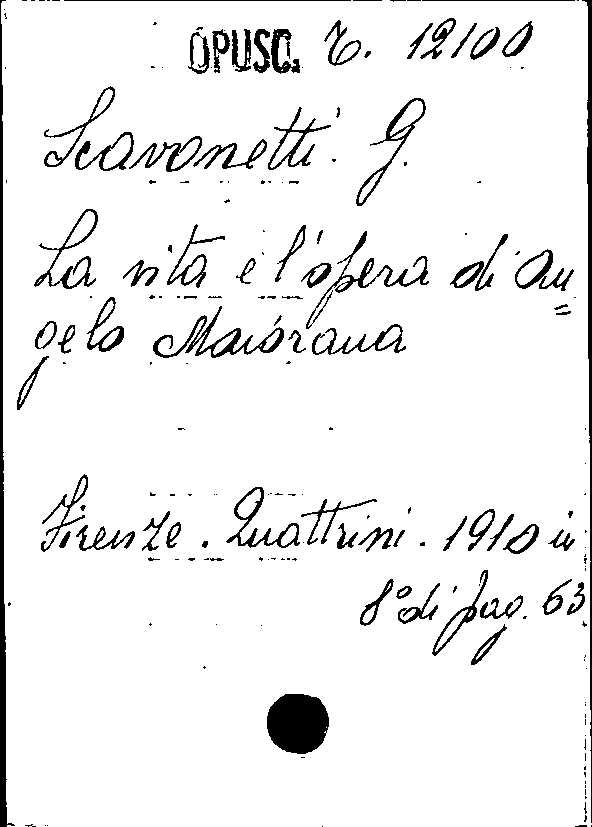 OPUSC. T. 12100
Scavonetti G.
La vita e l'opera di An=
gelo Maiorana
Firenze. Quattrini. 1910 in
8° di pag. 63